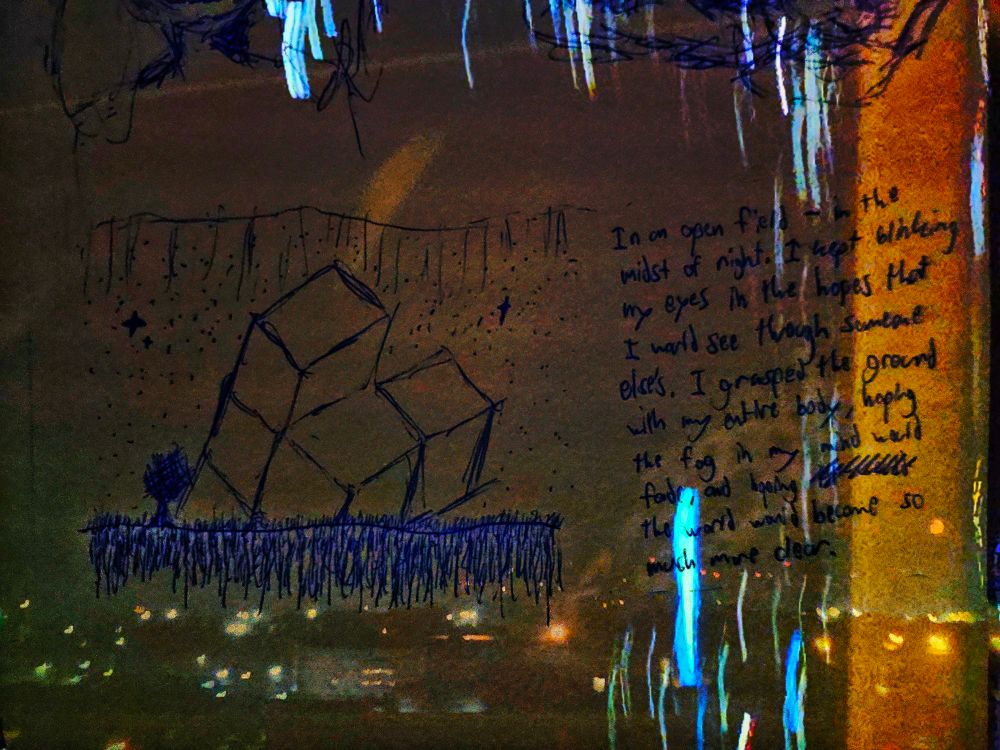 In an open field - in the
midst of night. I kept blinking
my eyes in the hopes that
I would see through someone
else's. I grasped the ground
with my entire body, hoping
the fog in my mind would
fade, and hoping
the world would become so
much more clear.